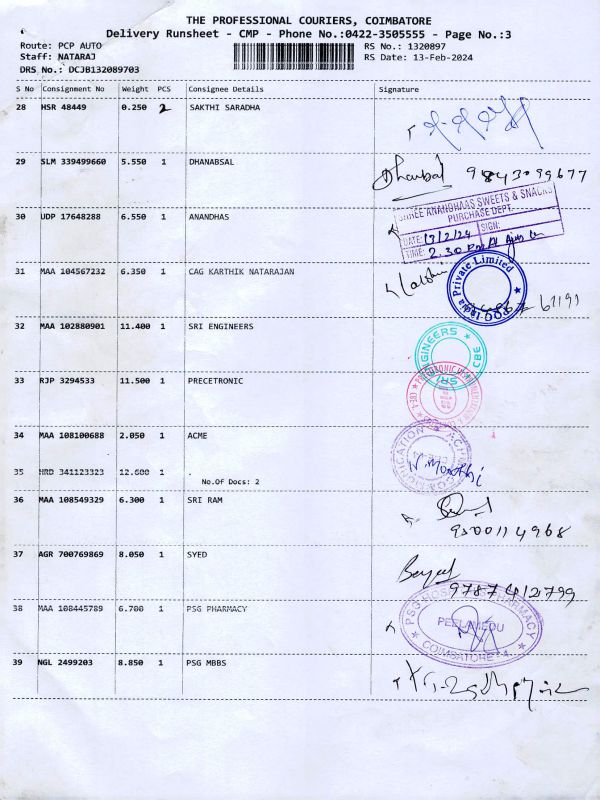 THE PROFESSIONAL COURIERS, COIMBATORE
Delivery Runsheet - CMP - Phone No.:0422-3505555 - Page No.:3
Route: PCP AUTO RS No.: 1320897
Staff: NATARAJ RS Date: 13-Feb-2024
DRS No.: DCJB132089703
S No Consignment No Weight PCS Consignee Details Signature
28 HSR 48449 0.250 2 SAKTHI SARADHA
29 SLM 339499660 5.550 1 DHANABSAL
Dhanbal 9843099677
SHREE ANANDHAAS SWEETS & SNACKS
PURCHASE DEPT.
30 UDP 17648288 6.550 1 ANANDHAS
DATE: 17/2/24 SIGN:
TIME: 2.30
31 MAA 104567232 6.350 1 CAG KARTHIK NATARAJAN
India Private Limited
32 MAA 102880901 11.400 1 SRI ENGINEERS
SRI ENGINEERS CBE
33 RJP 3294533 11.500 1 PRECETRONIC
34 MAA 108100688 2.050 1 ACME
35 HRD 341123323 12.600 1
No.Of Docs: 2
36 MAA 108549329 6.300 1 SRI RAM
9500114968
37 AGR 700769869 8.050 1 SYED
9787412799
38 MAA 108445789 6.700 1 PSG PHARMACY
PSG HOSPITALS PHARMACY
PEELAMEDU
COIMBATORE-4.
39 NGL 2499203 8.850 1 PSG MBBS